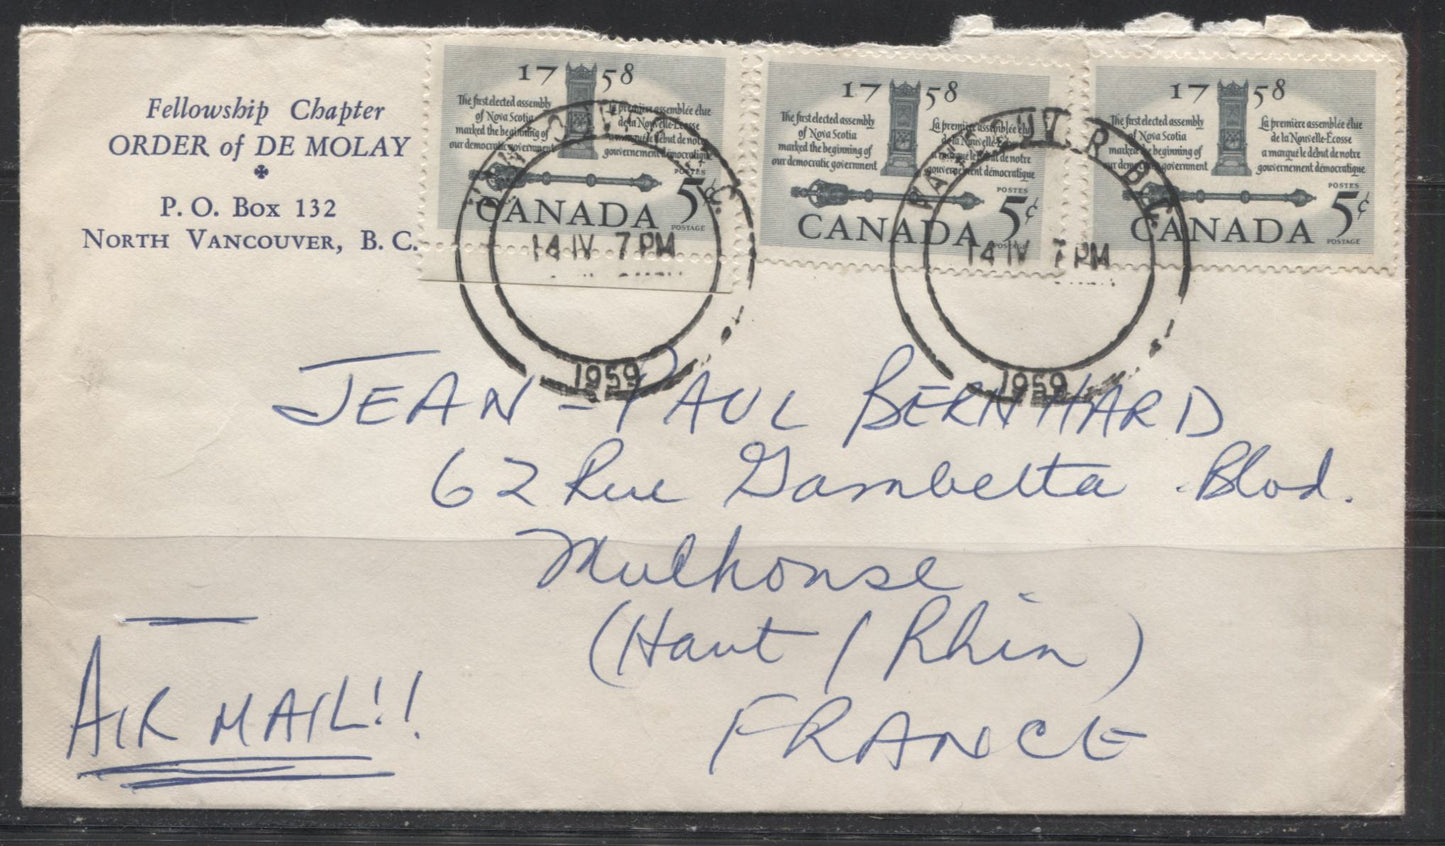 Fellowship Chapter
ORDER of DE MOLAY
P. O. Box 132
NORTH VANCOUVER, B. C.
17 58
The first elected assembly
of Nova Scotia
marked the beginning of
our democratic government
La première assemblée élue
de la Nouvelle-Écosse
a marqué le début de notre
gouvernement démocratique
POSTES
CANADA 5
POSTAGE
17 58
The first elected assembly
of Nova Scotia
marked the beginning of
our democratic government
La première assemblée élue
de la Nouvelle-Écosse
a marqué le début de notre
gouvernement démocratique
POSTES
CANADA 5¢
POSTAGE
17 58
The first elected assembly
of Nova Scotia
marked the beginning of
our democratic government
La première assemblée élue
de la Nouvelle-Écosse
a marqué le début de notre
gouvernement démocratique
POSTES
CANADA 5¢
POSTAGE
VANCOUVER B.C.
14 IV 7 PM
1959
VANCOUVER B.C.
14 IV 7 PM
1959
JEAN-PAUL BERNHARD
62 Rue Gambetta Blvd.
Mulhouse
(Haut / Rhin)
FRANCE
AIR MAIL!!